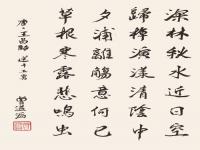 深林秋水近日空
歸棹演漾清陰中
夕浦離觴意何已
草根寒露悲鳴虫
唐 王昌齡 送十五舅